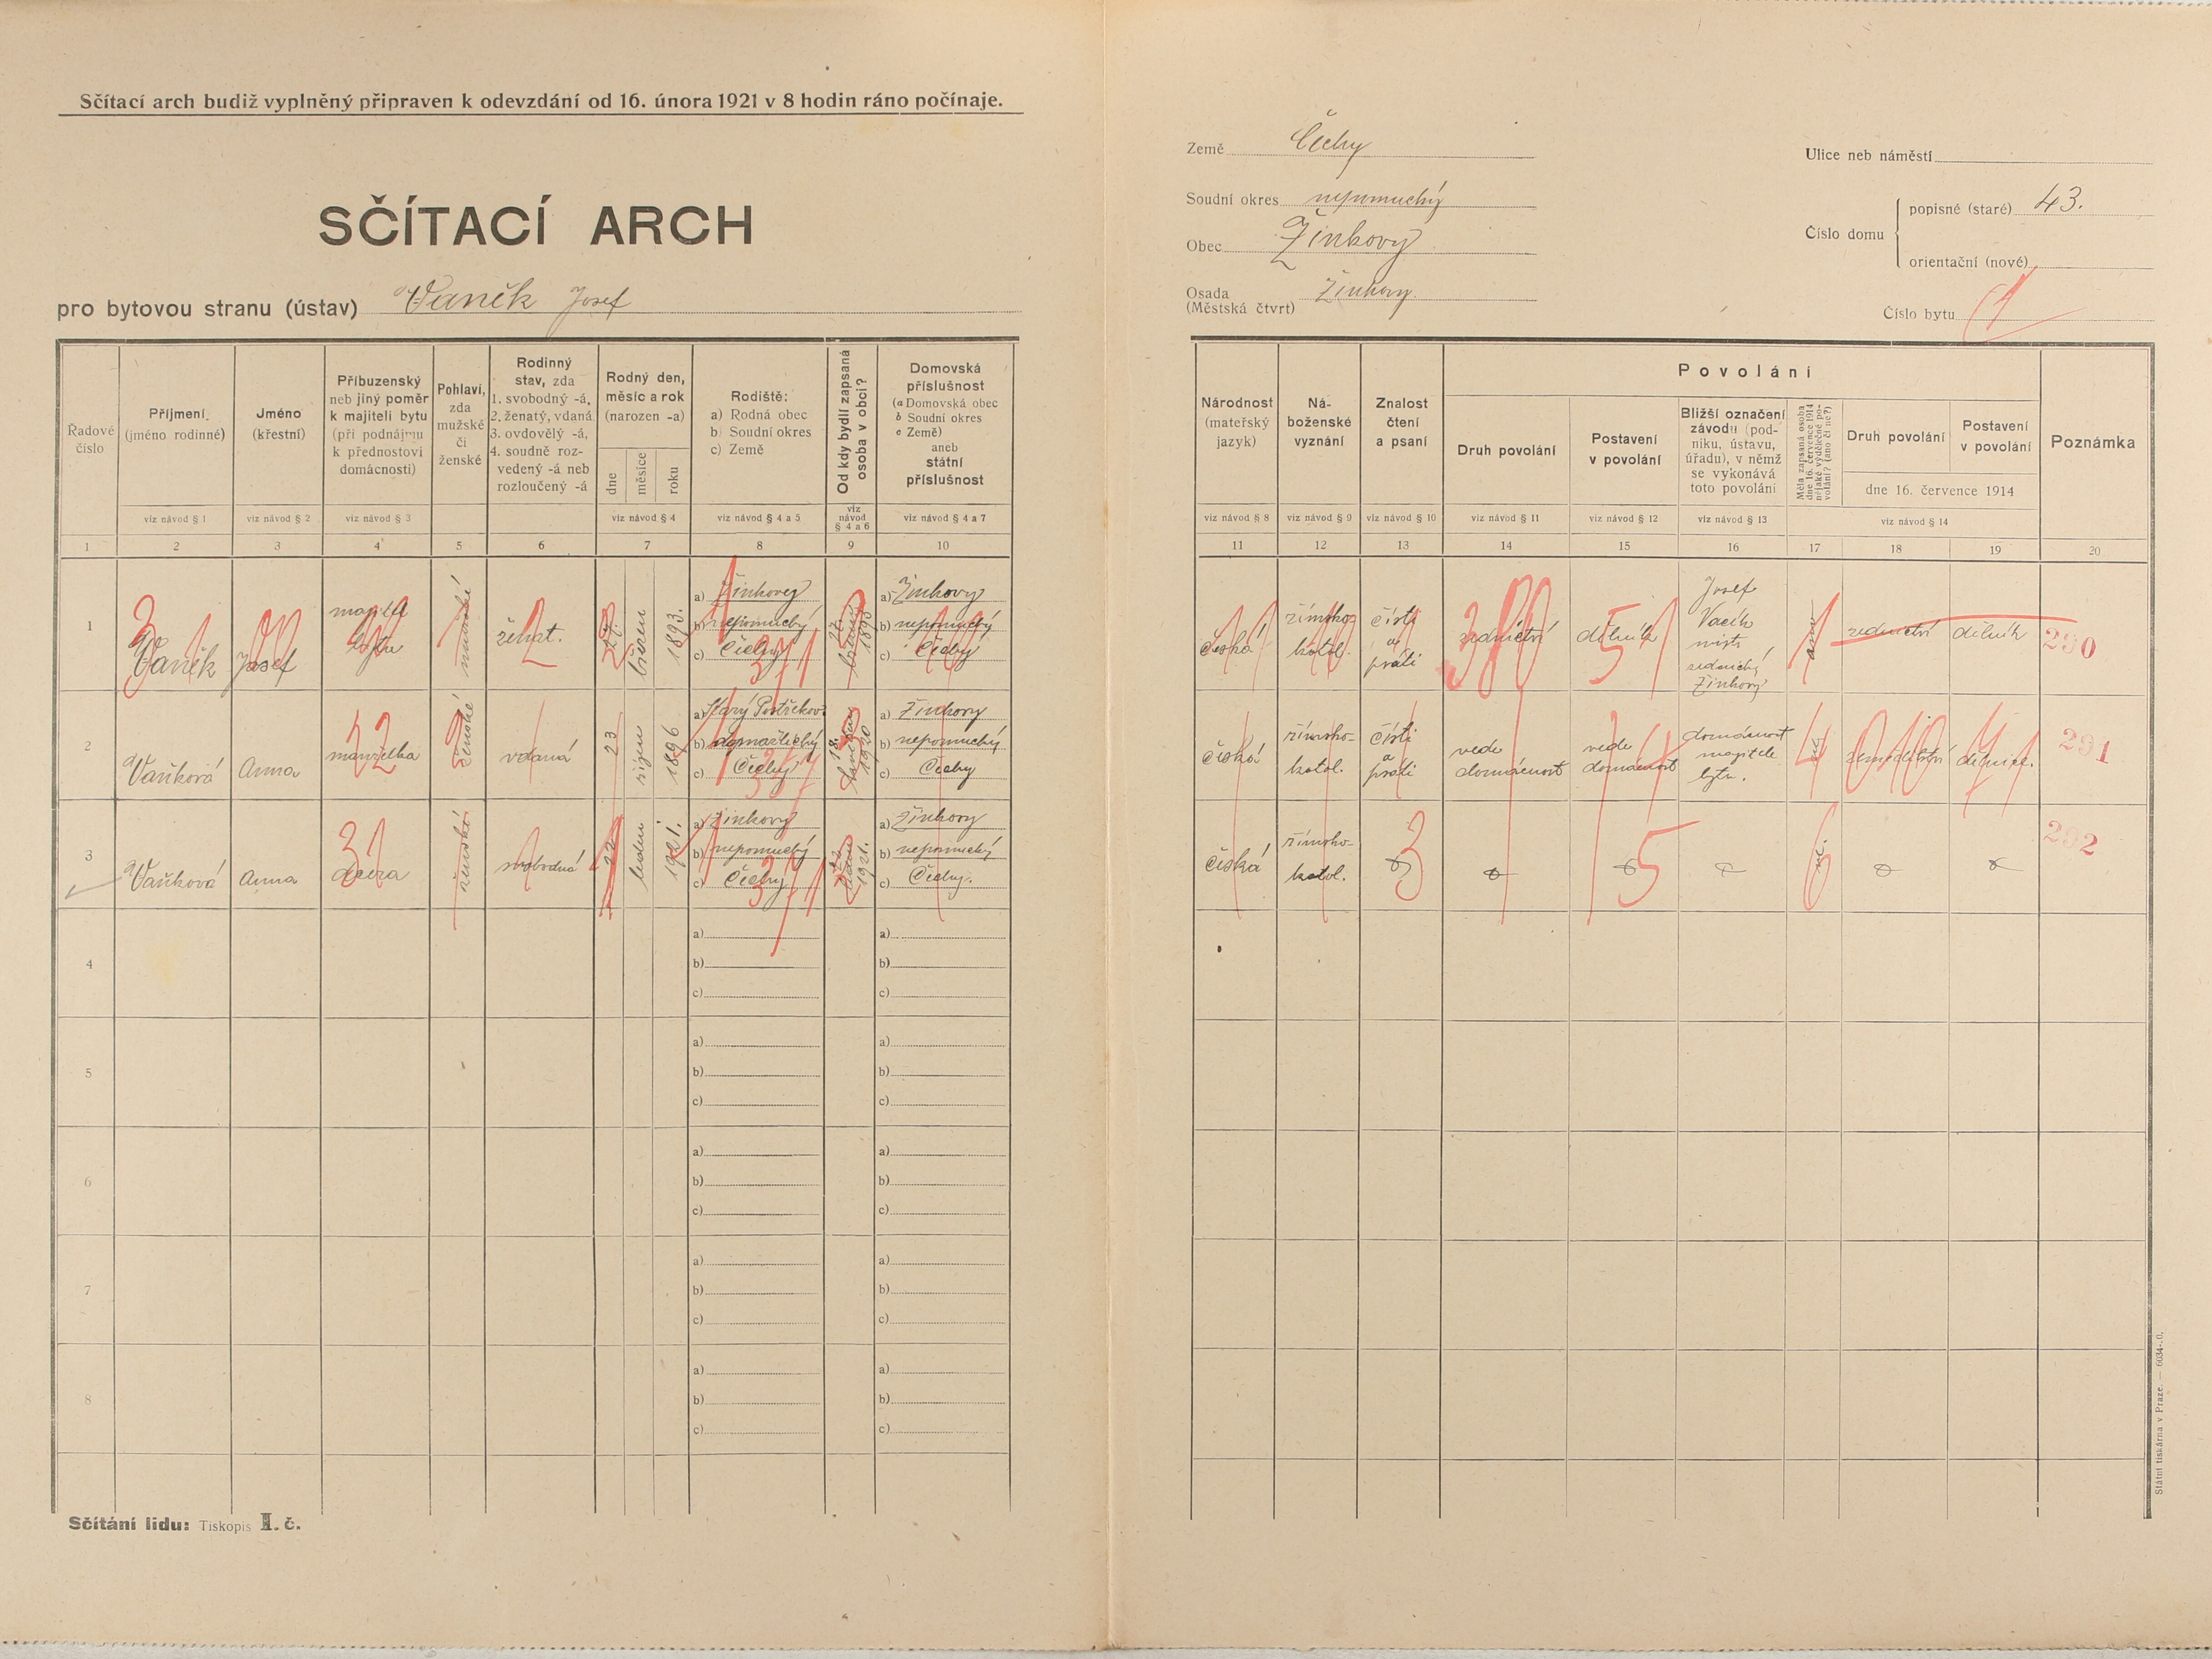 Sčítací arch budiž vyplněný připraven k odevzdání od 16. února 1921 v 8 hodin ráno počínaje.
SČÍTACÍ ARCH
pro bytovou stranu (ústav) Vaněk Josef
Země Čechy
Soudní okres nepomucký
Obec Žinkovy
Osada Žinkovy
(Městská čtvrt)
Ulice neb náměstí
Číslo domu
popisné (staré) 43.
orientační (nové)
Číslo bytu 1
Řadové číslo
Příjmení (jméno rodinné)
Jméno (křestní)
Příbuzenský neb jiný poměr k majiteli bytu (při podnájmu k přednostovi domácnosti)
Pohlaví, zda mužské či ženské
Rodinný stav, zda 1. svobodný -á, 2. ženatý, vdaná 3. ovdovělý -á, 4. soudně rozvedený -á neb rozloučený -á
Rodný den, měsíc a rok (narozen -a)
dne
měsíce
roku
Rodiště:
a) Rodná obec
b) Soudní okres
c) Země
Od kdy bydlí zapsaná osoba v obci?
Domovská příslušnost
(a Domovská obec
b Soudní okres
c Země)
aneb
státní příslušnost
viz návod § 1
viz návod § 2
viz návod § 3
viz návod § 4
viz návod § 4 a 5
viz návod § 4 a 6
viz návod § 4 a 7
1 2 3 4 5 6 7 8 9 10
Národnost (mateřský jazyk)
Náboženské vyznání
Znalost čtení a psaní
Povolání
Druh povolání
Postavení v povolání
Bližší označení závodu (podniku, ústavu, úřadu), v němž se vykonává toto povolání
Měla zapsaná osoba dne 16. července 1914 nějaké výdělečné povolání? (ano či ne?)
Druh povolání
Postavení v povolání
dne 16. července 1914
Poznámka
viz návod § 8
viz návod § 9
viz návod § 10
viz návod § 11
viz návod § 12
viz návod § 13
viz návod § 14
11 12 13 14 15 16 17 18 19 20
1 Vaněk Josef majitel bytu mužské ženat. 27. březen 1893.
a) Žinkovy
b) nepomucký
c) Čechy
27. března 1893
a) Žinkovy
b) nepomucký
c) Čechy
česká římsko-katol. čísti a psáti zednictví dělník
Josef
Vacík
zednický
Žinkovy
ano zednictví dělník 290
2 Vaňková Anna manželka ženské vdaná 23 říjen 1896
a) Starý Postřekov
b) domažlický
c) Čechy
18. 1920
a) Žinkovy
b) nepomucký
c) Čechy
česká římsko-katol. čísti a psáti vede domácnost vede domácnost
domácnost
majitele
bytu.
ne zemědělství dělnice. 291
3 Vaňková Anna dcera ženské svobodná 22 leden 1921.
a) Žinkovy
b) nepomucký
c) Čechy
22 ledna 1921.
a) Žinkovy
b) nepomucký
c) Čechy.
česká římsko-katol. ne. 292
4
a)
b)
c)
a)
b)
c)
5
a)
b)
c)
a)
b)
c)
6
a)
b)
c)
a)
b)
c)
7
a)
b)
c)
a)
b)
c)
8
a)
b)
c)
a)
b)
c)
Sčítání lidu: Tiskopis I. č.
Státní tiskárna v Praze. — 6034-.0.